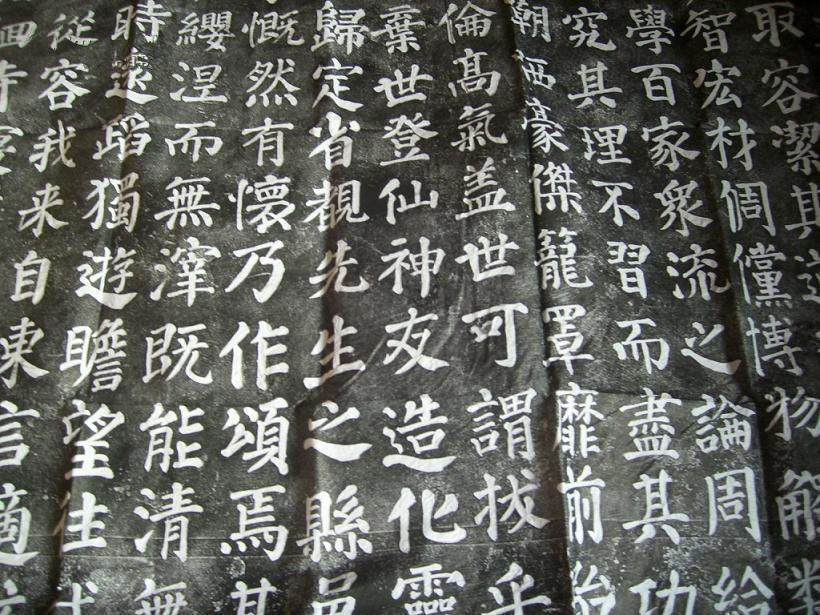 取容潔其
智宏材倜儻博物
學百家衆流之論周給
究其理不習而盡其功
嘲哂豪傑籠罩靡前跆
倫高氣盖世可謂拔乎
棄世登仙神友造化靈
歸定省覩先生之縣邑
慨然有懷乃作頌焉其
纓涅而無滓既能清無
時遠蹈獨遊瞻望往代
從容我来自東言適